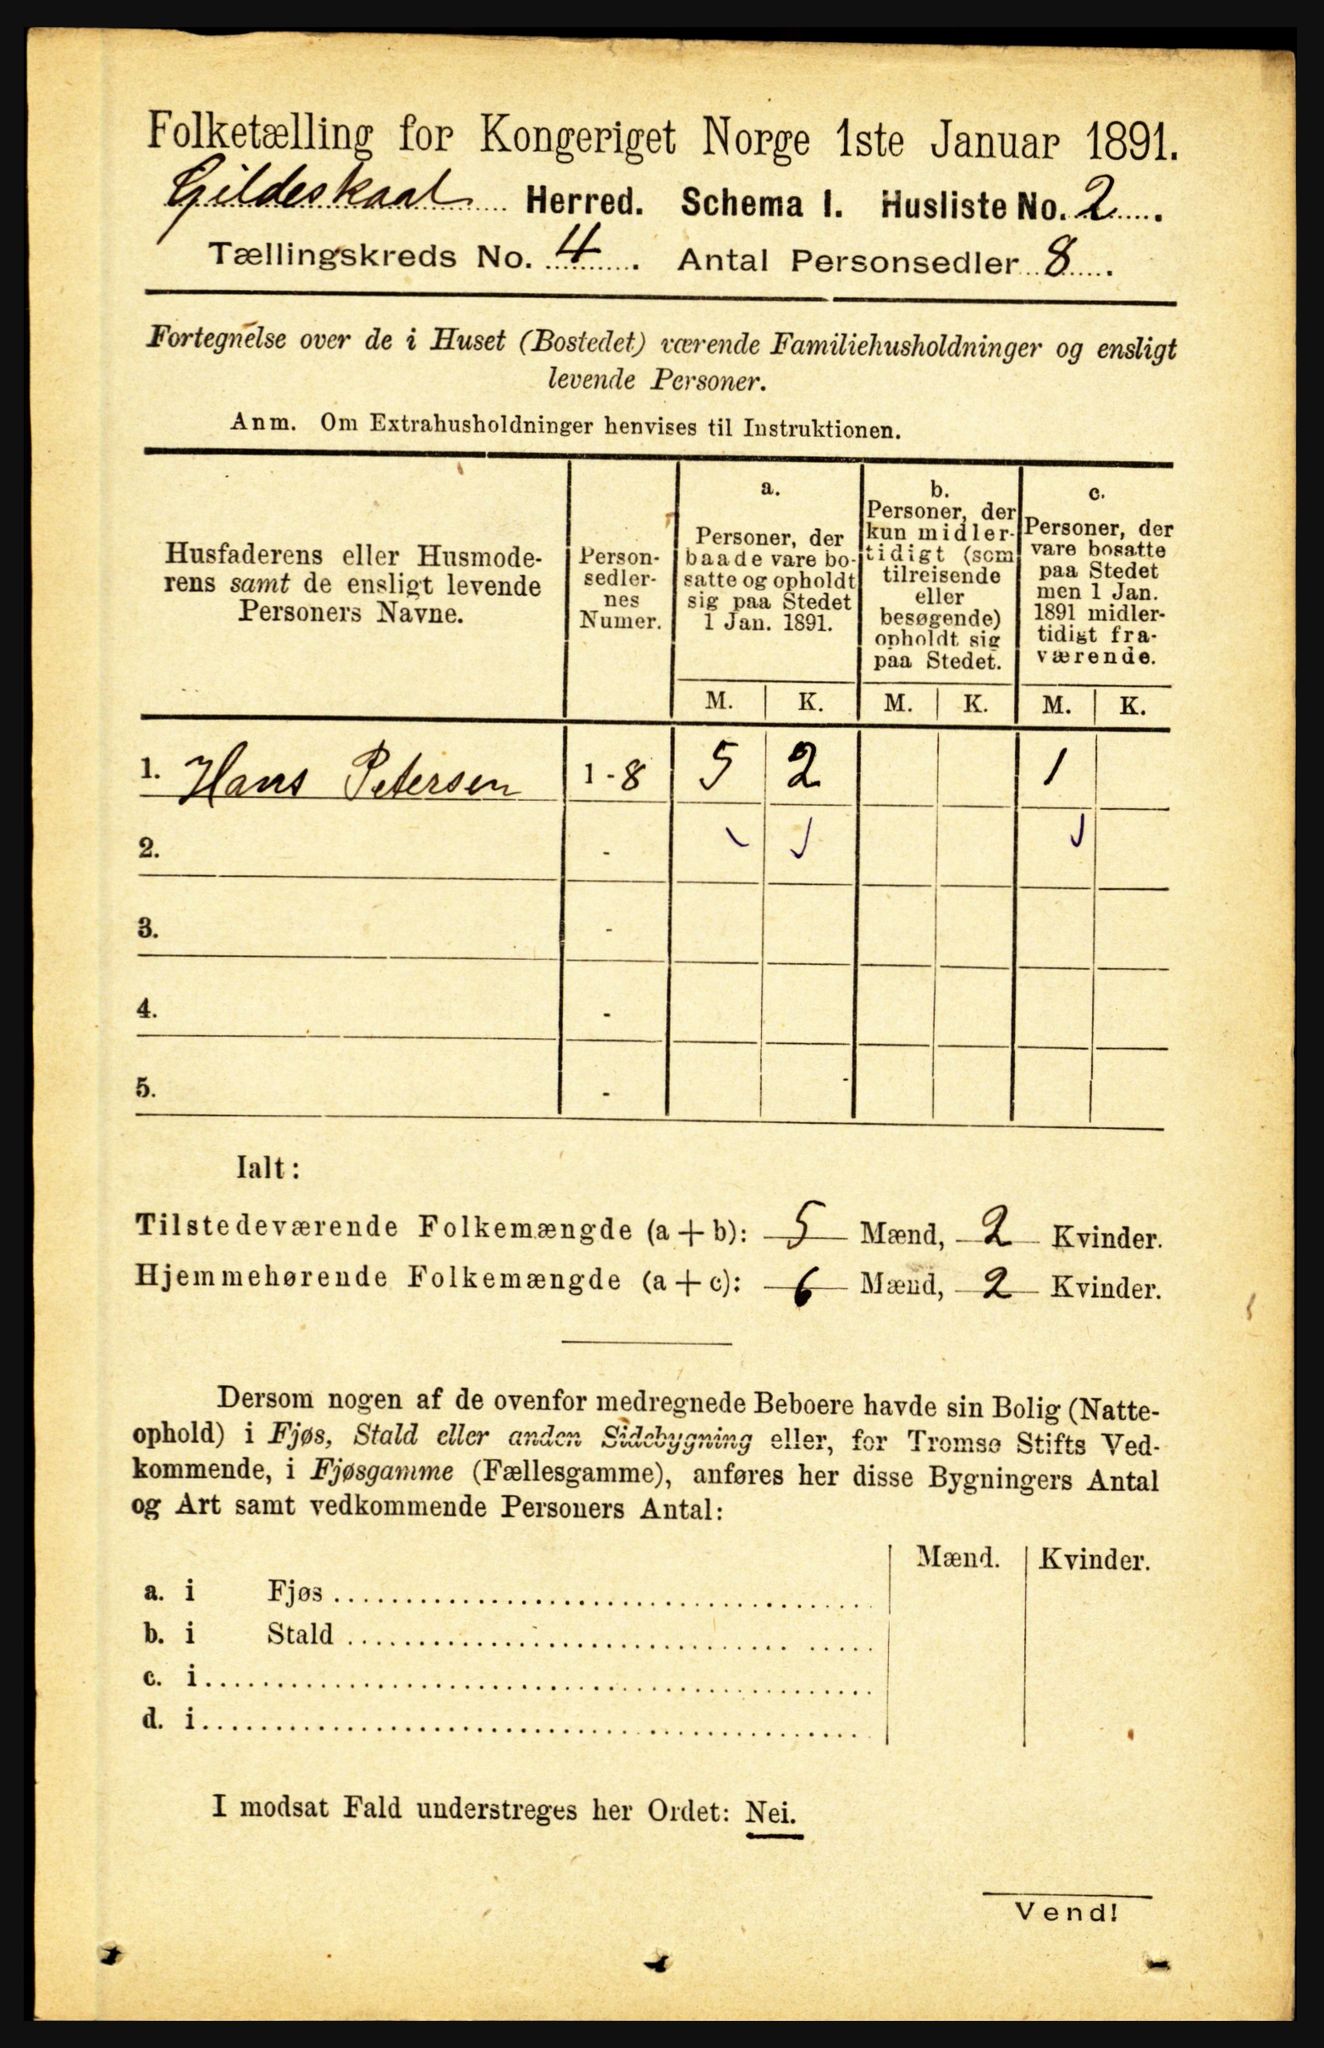 Folketælling for Kongeriget Norge 1ste Januar 1891.
Gildeskaal Herred. Schema I. Husliste No. 2.
Tællingskreds No. 4. Antal Personsedler 8.
Fortegnelse over de i Huset (Bostedet) værende Familiehusholdninger og ensligt
levende Personer.
Anm. Om Extrahusholdninger henvises til Instruktionen.
Husfaderens eller Husmode-
rens samt de ensligt levende
Personers Navne.
Person-
sedler-
nes
Numer.
a.
Personer, der
baade vare bo-
satte og opholdt
sig paa Stedet
1 Jan. 1891.
b.
Personer, der
kun midler-
tidigt (som
tilreisende
eller
besøgende)
opholdt sig
paa Stedet.
c.
Personer, der
vare bosatte
paa Stedet
men 1 Jan.
1891 midler-
tidigt fra-
værende.
M. K. M. K. M. K.
1. Hans Petersen 1-8 5 2 1
2. -
3. -
4. -
5. -
Ialt:
Tilstedeværende Folkemængde (a+b): 5 Mænd, 2 Kvinder.
Hjemmehørende Folkemængde (a+c): 6 Mænd, 2 Kvinder.
Dersom nogen af de ovenfor medregnede Beboere havde sin Bolig (Natte-
ophold) i Fjøs, Stald eller anden Sidebygning eller, for Tromsø Stifts Ved-
kommende, i Fjøsgamme (Fællesgamme), anføres her disse Bygningers Antal
og Art samt vedkommende Personers Antal:
Mænd. Kvinder.
a. i Fjøs
b. i Stald
c. i
d. i
I modsat Fald understreges her Ordet: Nei.
Vend!